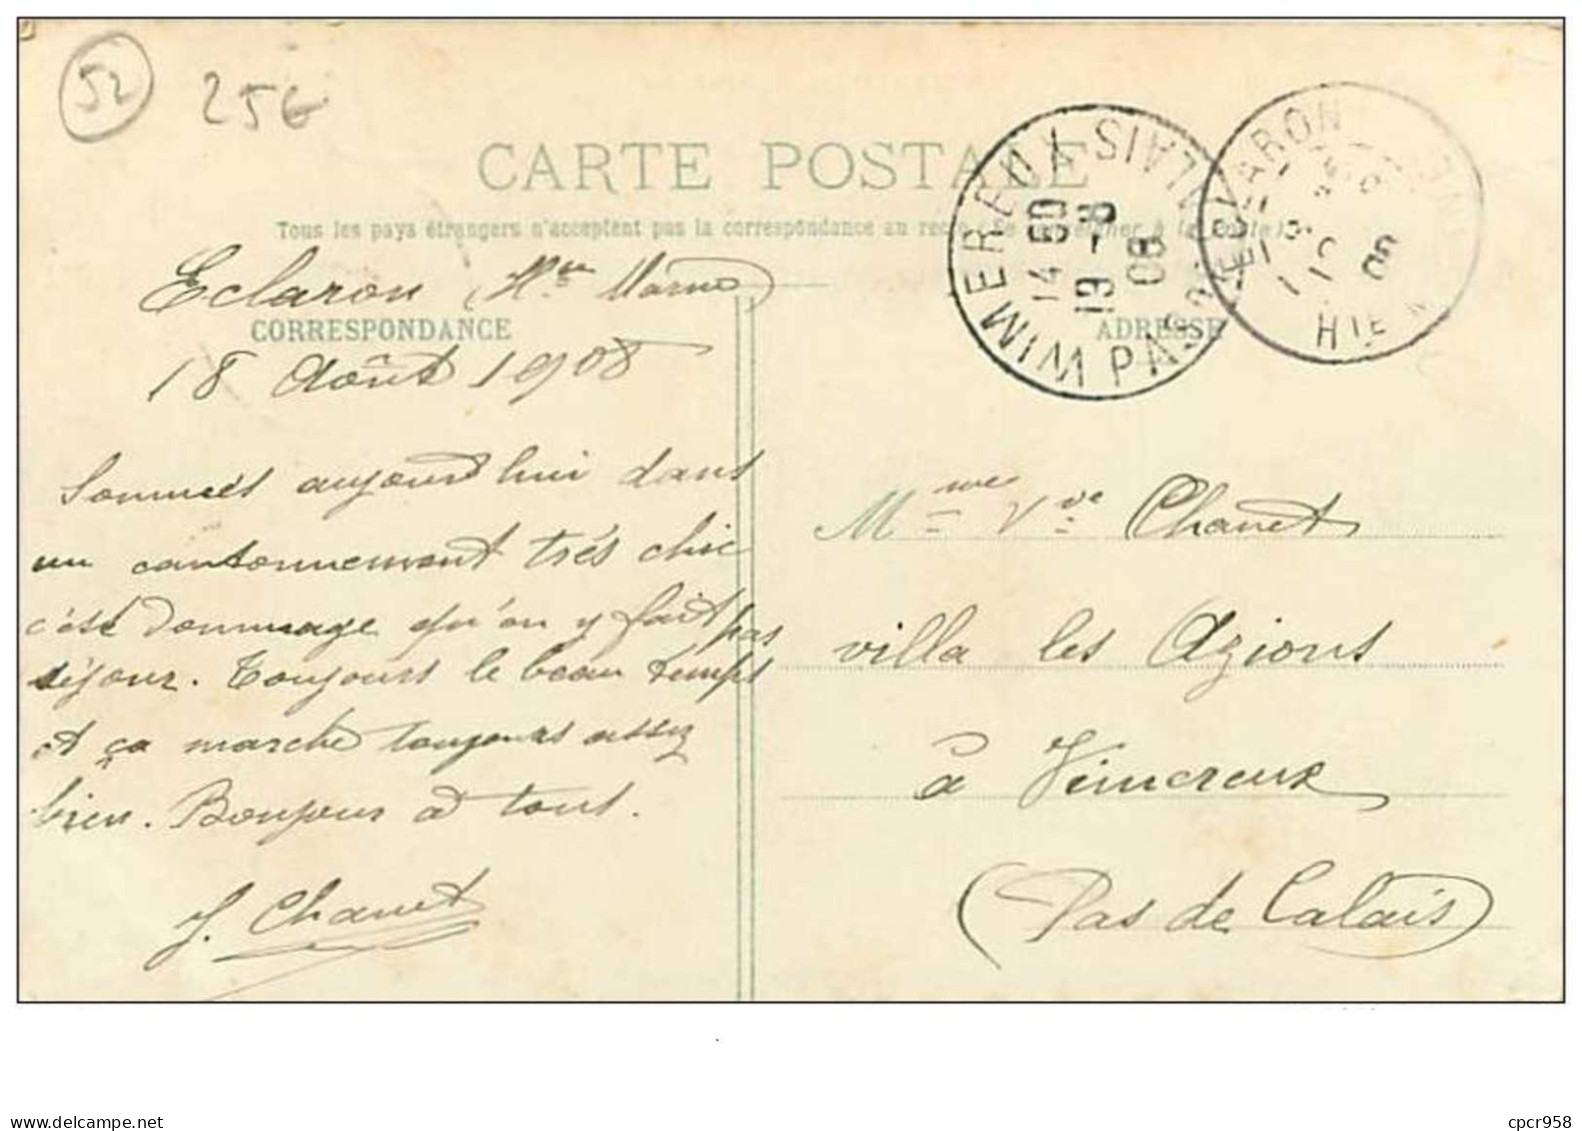 52
25€
CARTE POSTALE
Tous les pays étrangers n'acceptent pas la correspondance au recto (Se renseigner à la Poste)
WIMEREUX PAS-DE-CALAIS
14 50
19 -8
08
ECLARON
HTE M
08
Eclaron (Hte Marne)
CORRESPONDANCE
18 Août 1908
Sommes aujourd'hui dans
un cantonnement très chic
c'est dommage qu'on y fait pas
séjour. Toujours le beau temps
et ça marche toujours assez
bien. Bonjour à tous.
J. Chanet
ADRESSE
Mme Vve Chanet
villa les
à Vimereux
(Pas de Calais)
www.delcampe.net
cpcr958